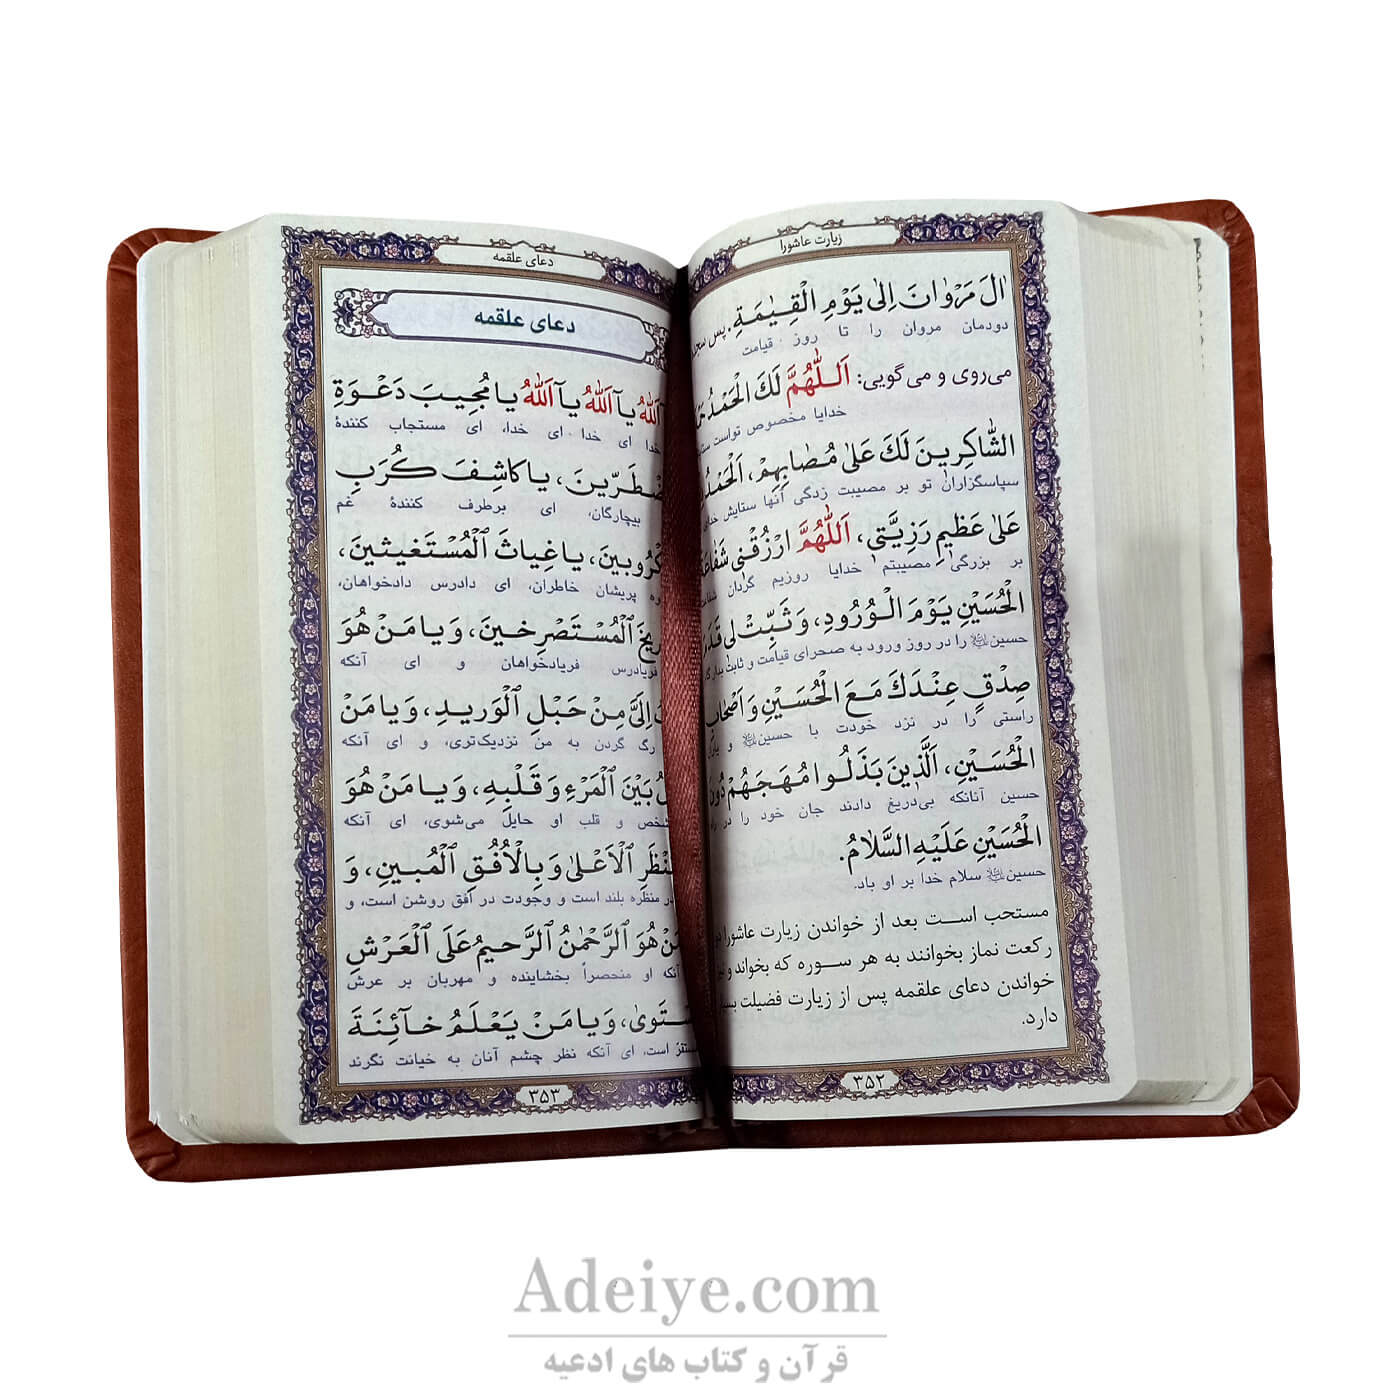 زیارت عاشورا
اٰلَ مَرْوٰانَ اِلىٰ يَوْمِ الْقِيٰمَةِ. پس
دودمان مروان را تا روز قیامت
می‌روی و می‌گویی: اَللّٰهُمَّ لَكَ الْحَمْدُ
خدایا مخصوص تواست
الشّٰاكِرينَ لَكَ عَلىٰ مُصٰابِهِمْ، اَلْحَمْدُ
سپاسگزاران تو بر مصیبت زدگی آنها ستایش خدای
عَلىٰ عَظيمِ رَزِيَّتي، اَللّٰهُمَّ ارْزُقْني
بر بزرگی مصیبتم خدایا روزیم گردان
الْحُسَيْنِ يَوْمَ الْوُرُودِ، وَ ثَبِّتْ لي
حسین را در روز ورود به صحرای قیامت و ثابت بدار
صِدْقٍ عِنْدَكَ مَعَ الْحُسَيْنِ وَ اَصْحٰابِ
راستی را در نزد خودت با حسین و
الْحُسَيْنِ، اَلَّذينَ بَذَلُوا مُهَجَهُمْ دُونَ
حسین آنانکه بی‌دریغ دادند جان خود را در
الْحُسَيْنِ عَلَيْهِ السَّلٰامُ.
حسین سلام خدا بر او باد.
مستحب است بعد از خواندن زیارت عاشورا
رکعت نماز بخوانند به هر سوره که بخواند و
خواندن دعای علقمه پس از زیارت فضیلت
دارد.
۳۵۲
دعای علقمه
دعای علقمه
اَللّٰهُ يٰٓا اَللّٰهُ يٰٓا اَللّٰهُ يا مُجيبَ دَعْوَةِ
خدا ای خدا ای خدا، ای مستجاب کنندهٔ
يا كاشِفَ كُرَبِ
بیچارگان، ای برطرف کنندهٔ غم
يا غِياثَ الْمُسْتَغيثينَ،
پریشان خاطران، ای دادرس دادخواهان،
الْمُسْتَصْرِخينَ، وَ يا مَنْ هُوَ
فریادرس فریادخواهان و ای آنکه
اِلَيَّ مِنْ حَبْلِ الْوَريدِ، وَ يا مَنْ
رگ گردن به من نزدیک‌تری، و ای آنکه
بَيْنَ الْمَرْءِ وَ قَلْبِهِ، وَ يا مَنْ هُوَ
و قلب او حایل می‌شوی، ای آنکه
الْاَعْلىٰ وَ بِالْاُفُقِ الْمُبينِ، وَ
در منظره بلند است و وجودت در افق روشن است، و
هُوَ الرَّحْمٰنُ الرَّحيمُ عَلَى الْعَرْشِ
آنکه او منحصراً بخشاینده و مهربان بر عرش
وَ يا مَنْ يَعْلَمُ خٰآئِنَةَ
است، ای آنکه نظر چشم آنان به خیانت نگرند
۳۵۳
Adeiye.com
قرآن و کتاب های ادعیه